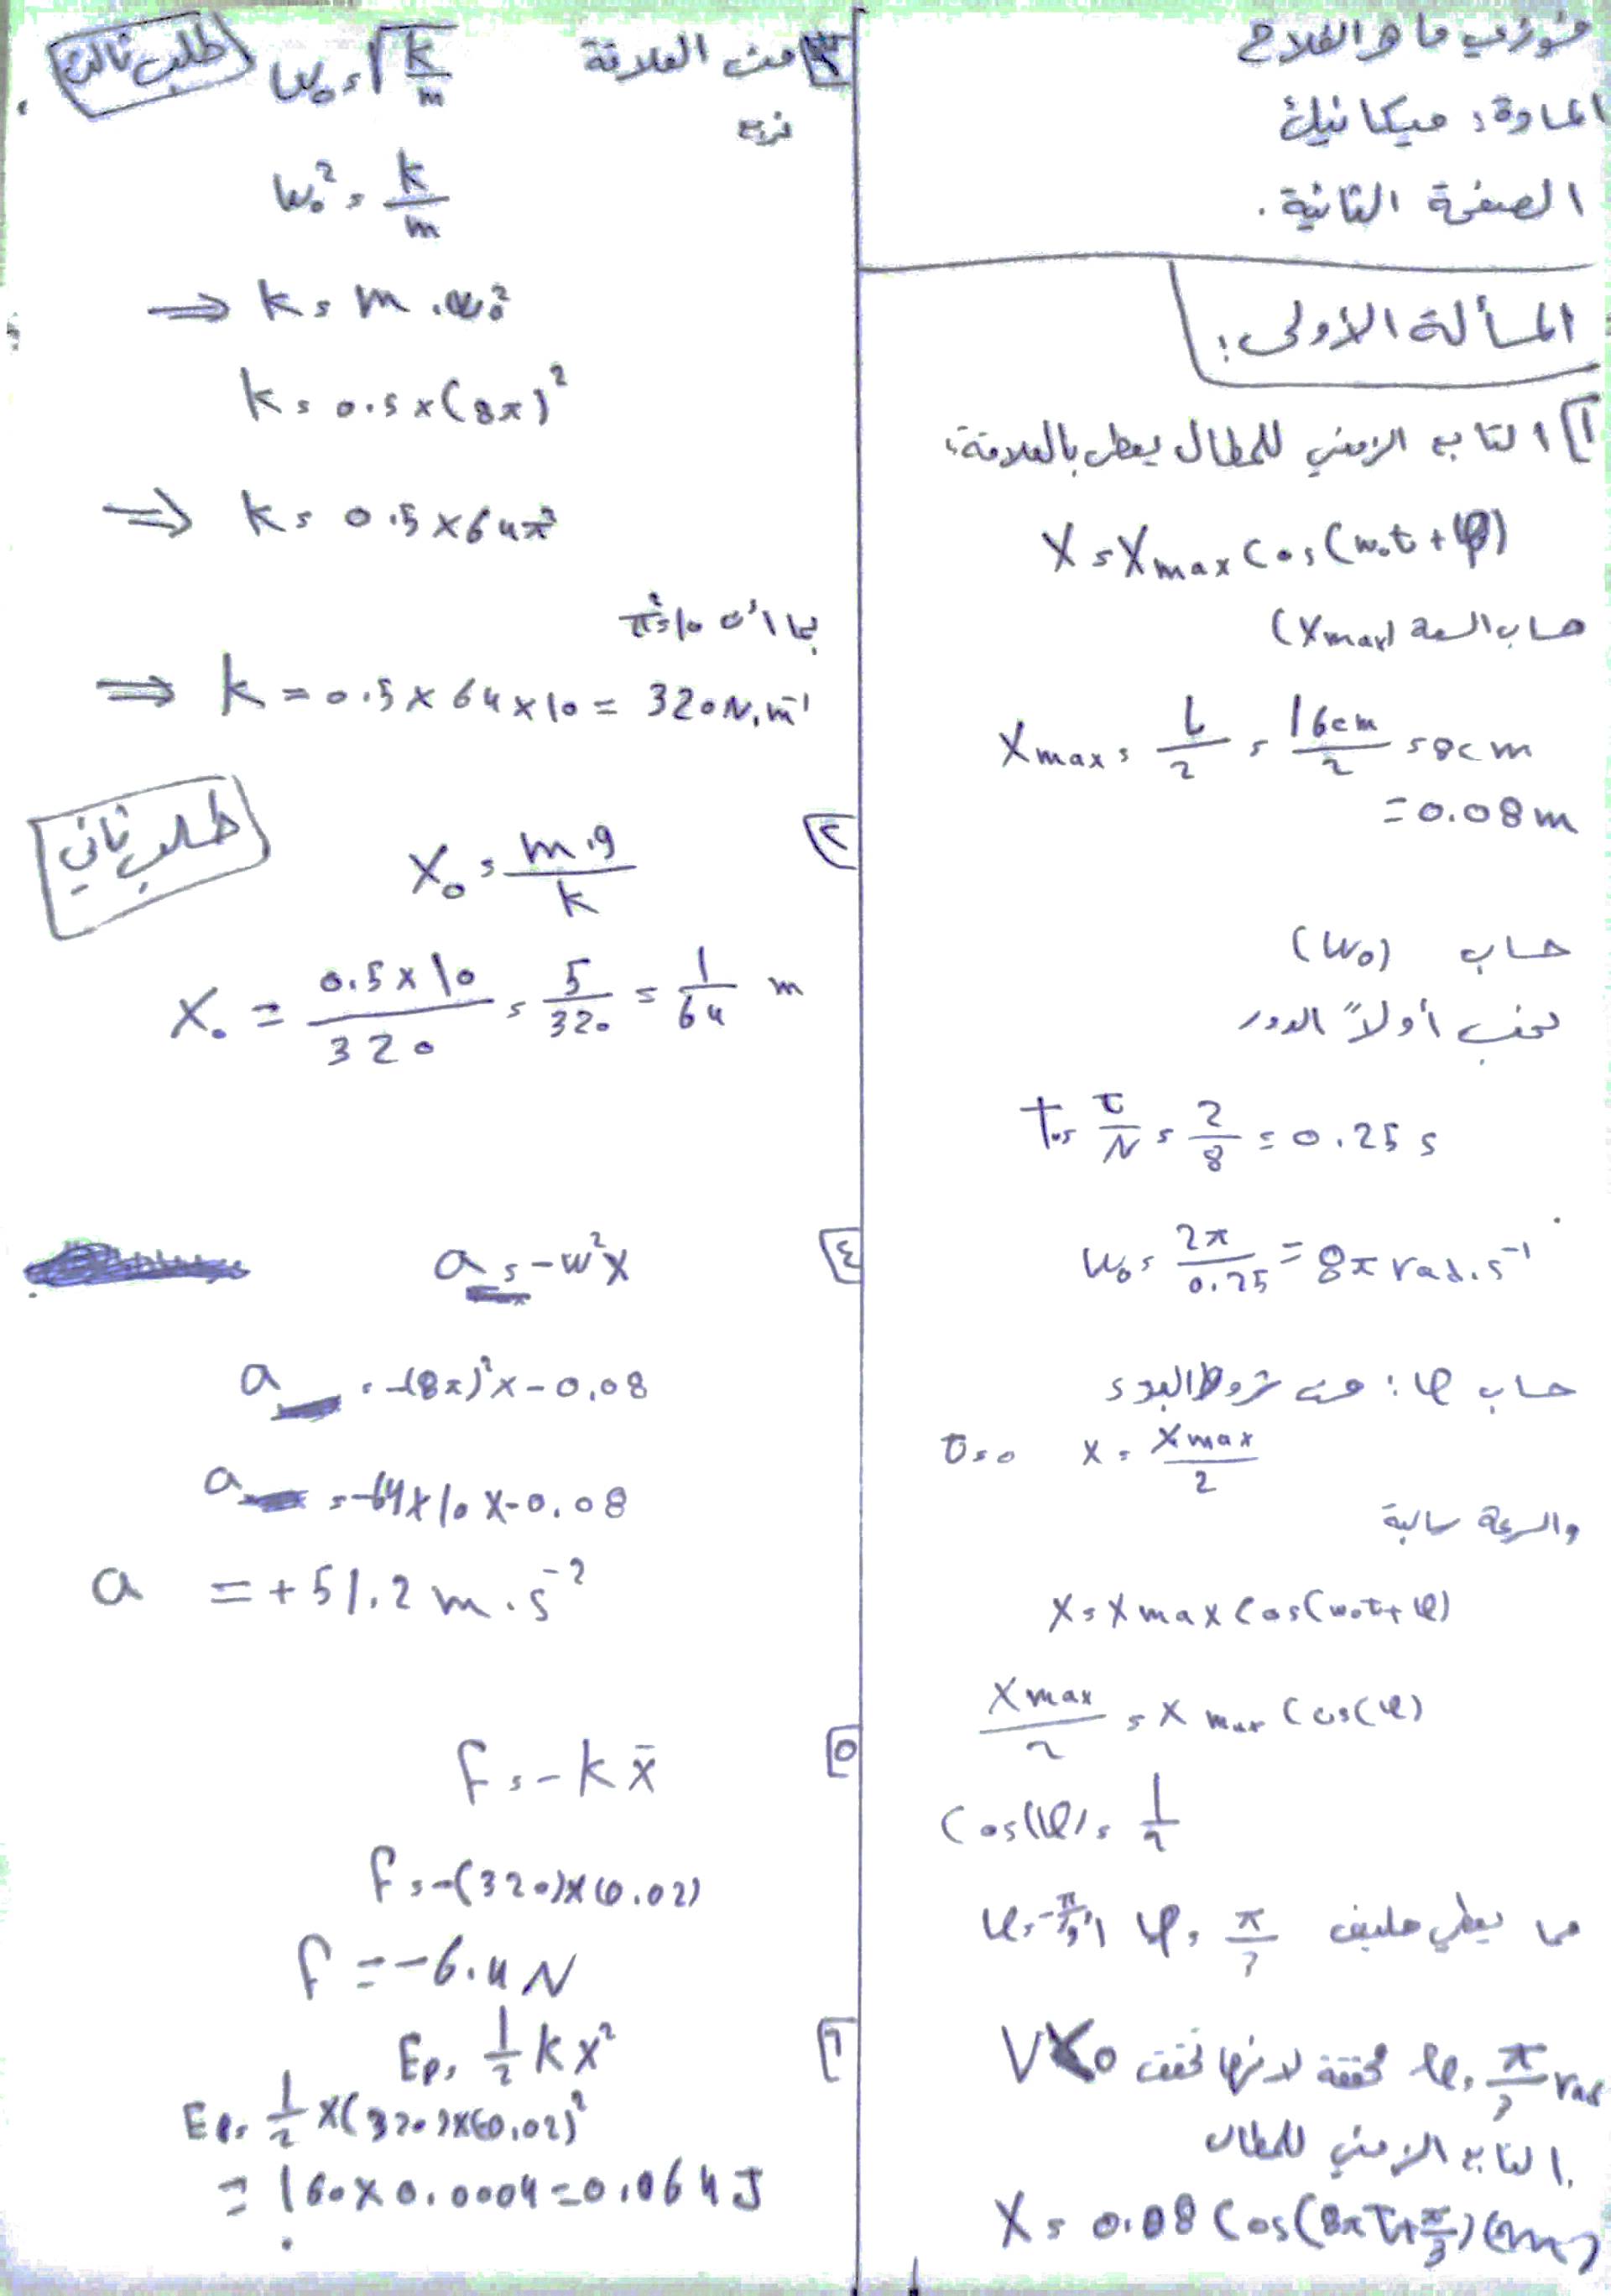 فوزي ماهر الفلاح
المادة: ميكانيك
الصفحة الثانية.
المسألة الأولى:
١] التابع الزمني للمطال يعطى بالعلاقة:
X = Xmax Cos(ω₀t + φ)
حساب السعة (Xmax)
Xmax = L/2 = 16cm/2 = 8cm
= 0.08m
حساب (ω₀)
نحسب أولاً الدور
T₀ = t/N = 2/8 = 0.25 s
ω₀ = 2π/0.25 = 8π rad.s⁻¹
حساب φ: من شروط البدء
t=0 x = Xmax/2
والسرعة سالبة
X = Xmax Cos(ω₀t + φ)
Xmax/2 = Xmax Cos(φ)
Cos(φ) = 1/2
مما يعطي حليف φ = π/3 أو φ = -π/3
φ = π/3 rad محققة لأنها تحقق V<0
التابع الزمني للمطال
X = 0.08 Cos(8πt + π/3) (m)
٣] من العلاقة ω₀ = √(k/m) طلب ثالث
نربع
ω₀² = k/m
⇒ k = m.ω₀²
k = 0.5 × (8π)²
⇒ k = 0.5 × 64π²
بما أن π² = 10
⇒ k = 0.5 × 64 × 10 = 320 N.m⁻¹
٢] X₀ = m.g/k طلب ثاني
X₀ = 0.5×10/320 = 5/320 = 1/64 m
٤] a = -ω²x
a = -(8π)² × -0.08
a = -64×10×-0.08
a = +51.2 m.s⁻²
٥] F = -k x̄
F = -(320)×(0.02)
F = -6.4 N
٦] Ep = 1/2 k x²
Ep = 1/2 × (320)×(0.02)²
= 160 × 0.0004 = 0.064 J